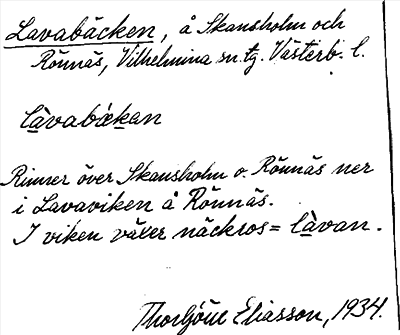 Lavabäcken, å Skansholm och
Rönnäs, Vilhelmina sn. tg. Västerb. l.
làvabækan
Rinner över Skansholm o. Rönnäs ner
i Lavaviken å Rönnäs.
I viken växer näckros = làvan.
Eliasson, 1934.